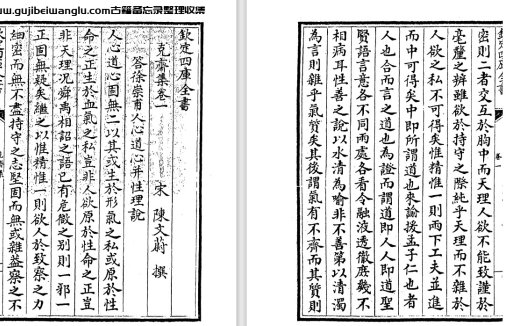 www.gujibeiwanglu.com古籍备忘录整理收集
欽定四庫全書
克齋集卷一
宋 陳文蔚 撰
答徐崇甫人心道心并性理說
人心道心固無二以其或生於形氣之私或原於性
命之正生於血氣之私豈非人欲原於性命之正豈
非天理況舜禹相詔之語已有危微之别則一邪一
正固無疑矣繼之以惟精惟一則欲人於致察之力
細密而無不盡持守之志堅固而無或雜蓋察之不
密則二者交互於胸中而天理人欲不能致謹於
毫釐之辨雖欲於持守之際純乎天理而不雜於
人欲之私不可得矣惟精惟一則兩下工夫並進
而中可得矣中即所謂道也來諭援孟子仁也者
人也合而言之道也為證而謂道即人人即道聖
賢語言意各不同兩處各看令融液透徹庶幾不
相病耳性善之說以水清為喻非不善第以清濁
為言則雜乎氣質矣其後謂氣有不齊而其質則